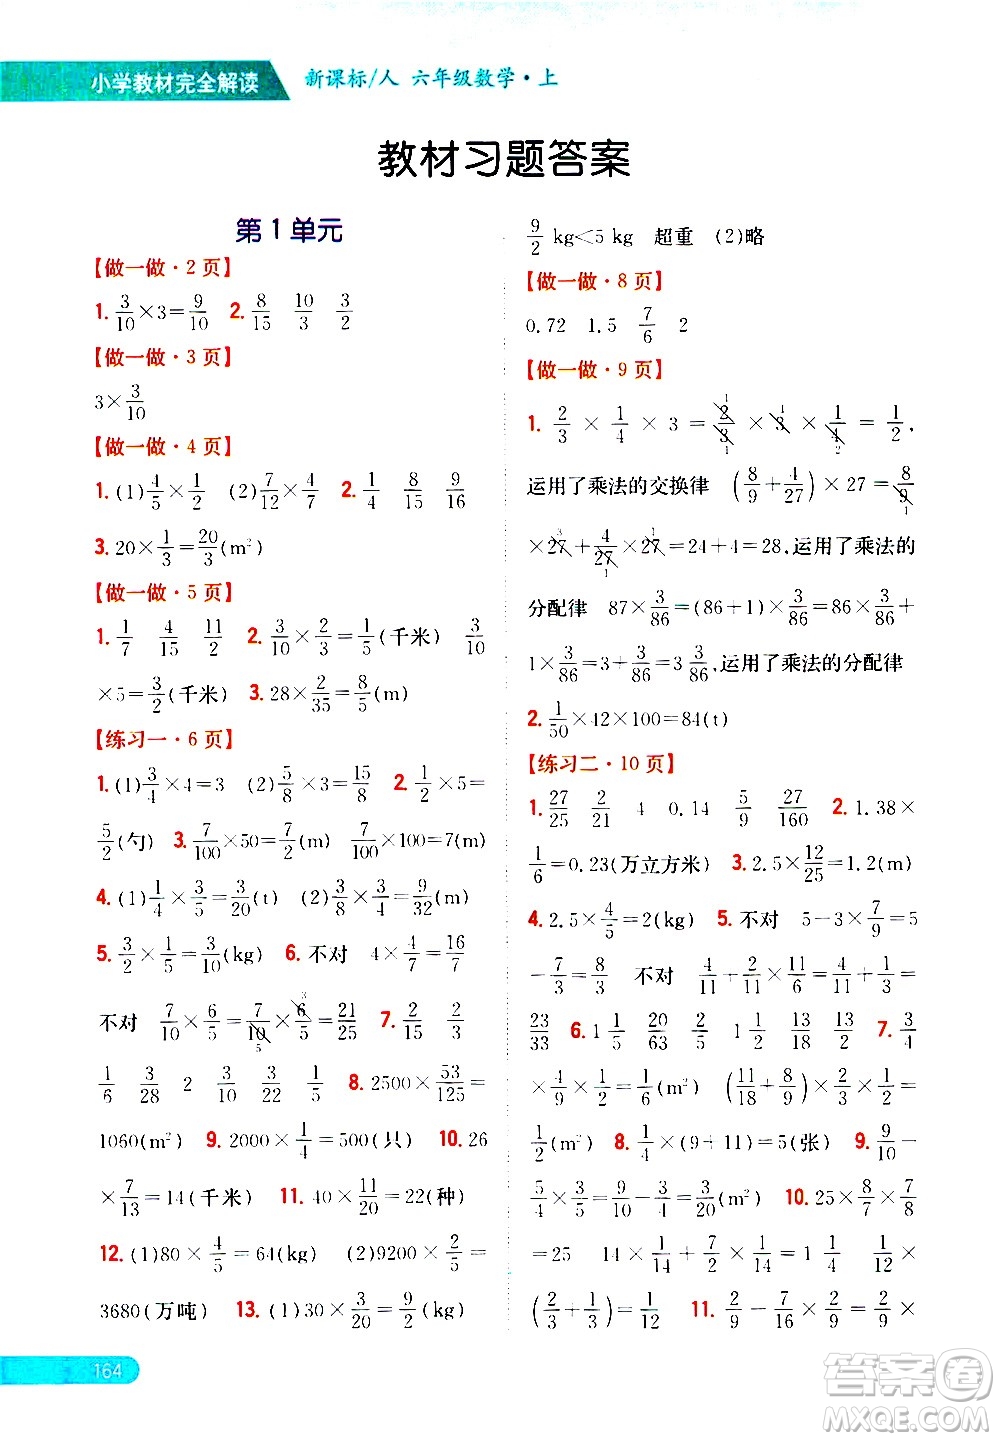 小学教材完全解读 新课标/人 六年级数学·上
教材习题答案
第1单元
【做一做·2页】
1. 3/10×3=9/10 2. 8/15 10/3 3/2
【做一做·3页】
3×3/10
【做一做·4页】
1. (1)4/5×1/2 (2)7/12×4/7 2. 1/4 8/15 9/16
3. 20×1/3=20/3(m²)
【做一做·5页】
1. 1/7 4/15 11/2 2. 3/10×2/3=1/5(千米) 3/10
×5=3/2(千米) 3. 28×2/35=8/5(m)
【练习一·6页】
1. (1)3/4×4=3 (2)5/8×3=15/8 2. 1/2×5=
5/2(勺) 3. 7/100×50=7/2(m) 7/100×100=7(m)
4. (1)1/4×3/5=3/20(t) (2)3/8×3/4=9/32(m)
5. 3/2×1/5=3/10(kg) 6. 不对 4×4/7=16/7
不对 7/10×6/5=7/10×6/5=21/25 7. 2/15 4/9
1/6 3/28 2 3/20 3/10 1/5 8. 2500×53/125=
1060(m²) 9. 2000×1/4=500(只) 10. 26
×7/13=14(千米) 11. 40×11/20=22(种)
12. (1)80×4/5=64(kg) (2)9200×2/5=
3680(万吨) 13. (1)30×3/20=9/2(kg)
164
9/2 kg<5 kg 超重 (2)略
【做一做·8页】
0.72 1.5 7/6 2
【做一做·9页】
1. 2/3×1/4×3=2/3×3×1/4=1/2,
运用了乘法的交换律 (8/9+4/27)×27=8/9
×27+4/27×27=24+4=28,运用了乘法的
分配律 87×3/86=(86+1)×3/86=86×3/86+
1×3/86=3+3/86=3 3/86,运用了乘法的分配律
2. 1/50×42×100=84(t)
【练习二·10页】
1. 27/25 2/21 4 0.14 5/9 27/160 2. 1.38×
1/6=0.23(万立方米) 3. 2.5×12/25=1.2(m)
4. 2.5×4/5=2(kg) 5. 不对 5-3×7/9=5
-7/3=8/3 不对 4/11+2/11×11/6=4/11+1/3=
23/33 6. 1 1/5 20/63 2/5 1 1/2 13/2 13/2 7. 3/4
×4/9×1/2=1/6(m²) (11/18+8/9)×1/3=
1/2(m²) 8. 1/4×(9+11)=5(张) 9. 9/10-
5/4×3/5=9/10-3/4=3/20(m²) 10. 25×8/7×7/8
=25 1/14×4+7/2×1/14=1 1/4 1/12×
(2/3+1/3)=1/12 11. 2/9-7/16×2/9=2/9×